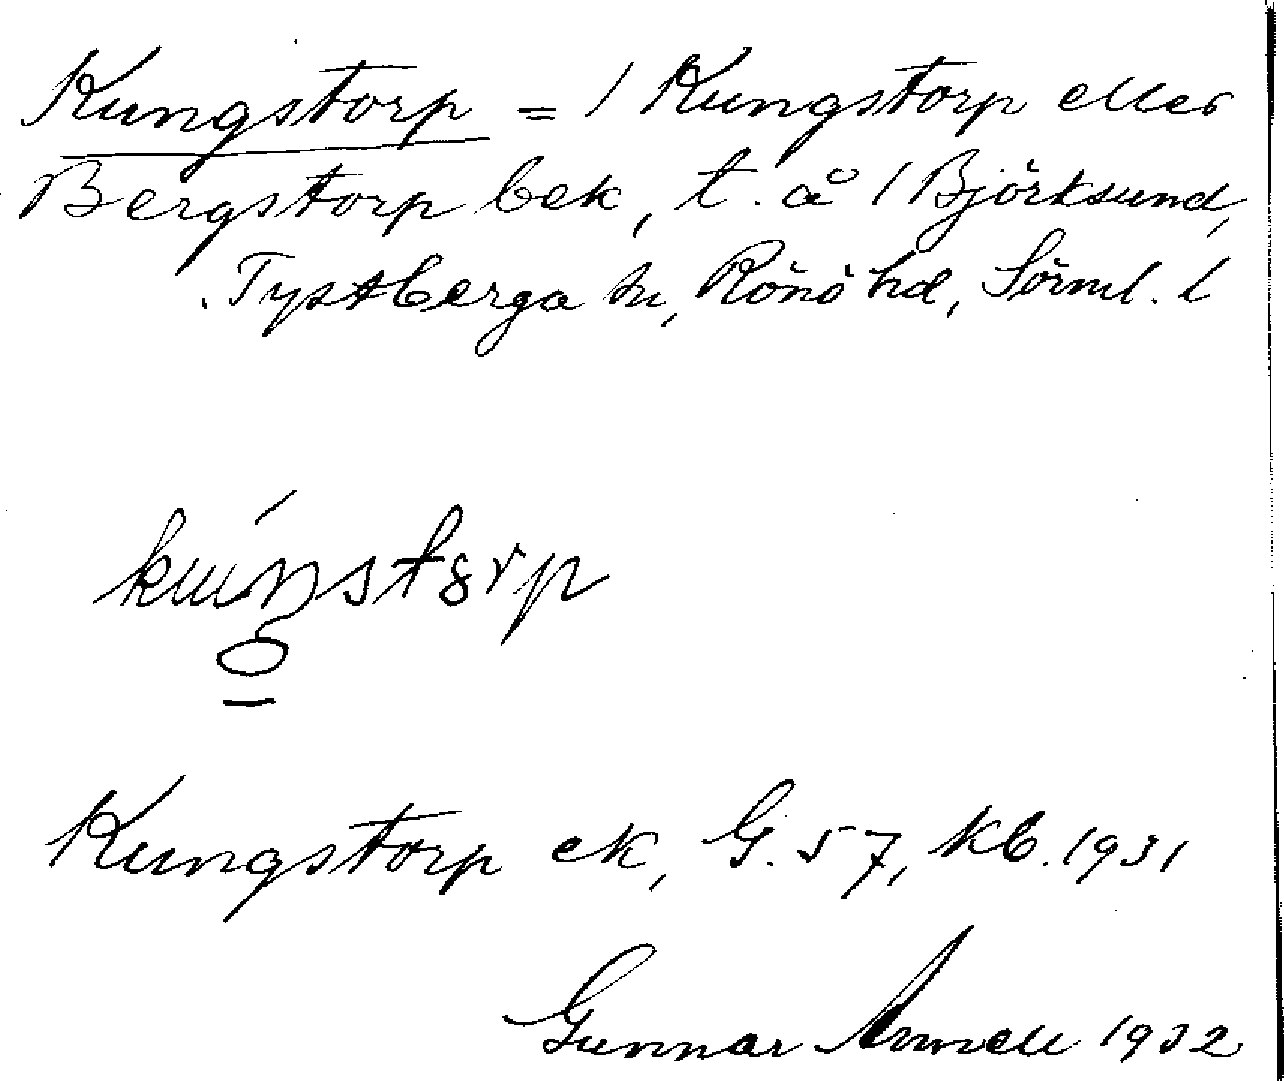 Kungstorp = 1 Kungstorp eller
Bergstorp bek, t. å 1 Björksund,
Tystberga sn, Rönö hd, Sörml. l
kuŋstȯrp
Kungstorp ek, G. 57, kb. 1931
Gunnar Annell 1932